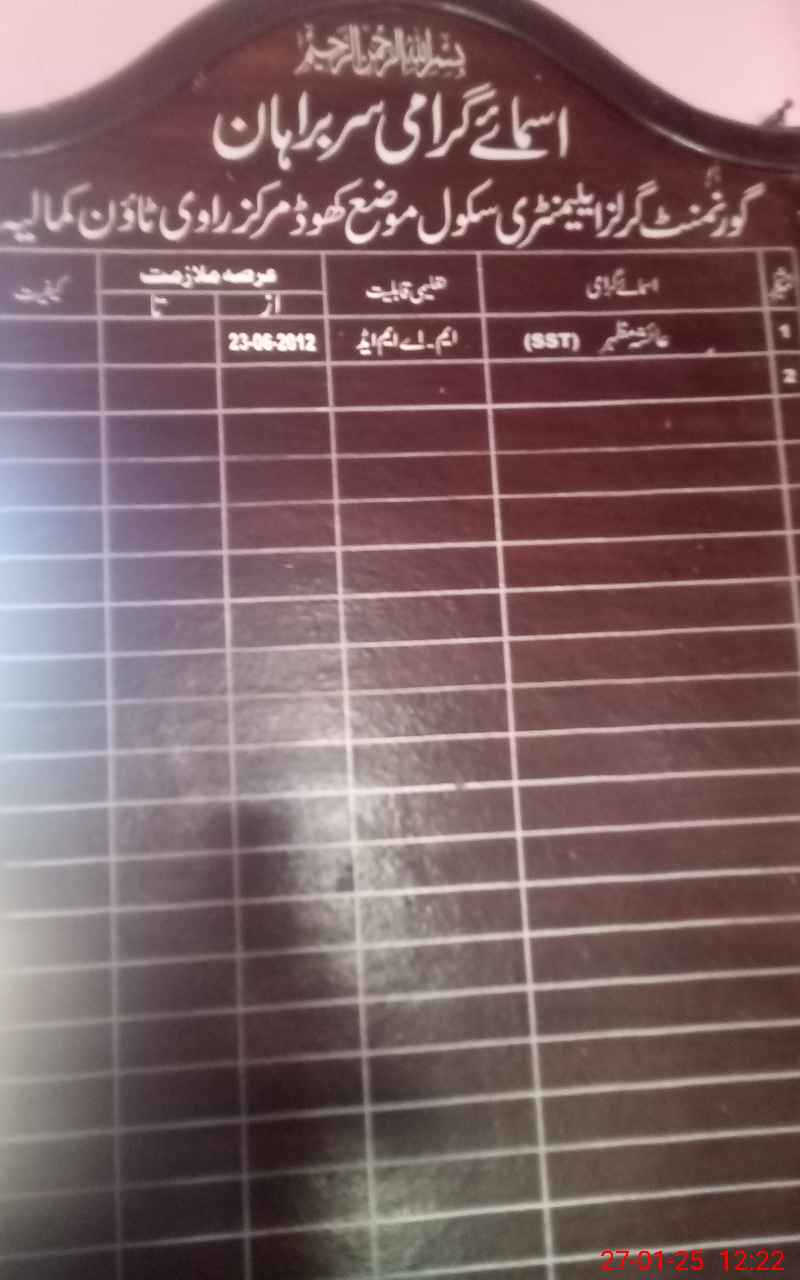 بسم اللہ الرحمن الرحیم
اسمائے گرامی سربراہان
گورنمنٹ گرلز ایلیمنٹری سکول موضع کھوڈ مرکز راوی ٹاؤن کمالیہ
نمبر شمار اسمائے گرامی تعلیمی قابلیت عرصہ ملازمت کیفیت
از تا
1 عائشہ مظہر (SST) ایم۔اے ایم ایڈ 23-06-2012
2
27-01-25 12:22